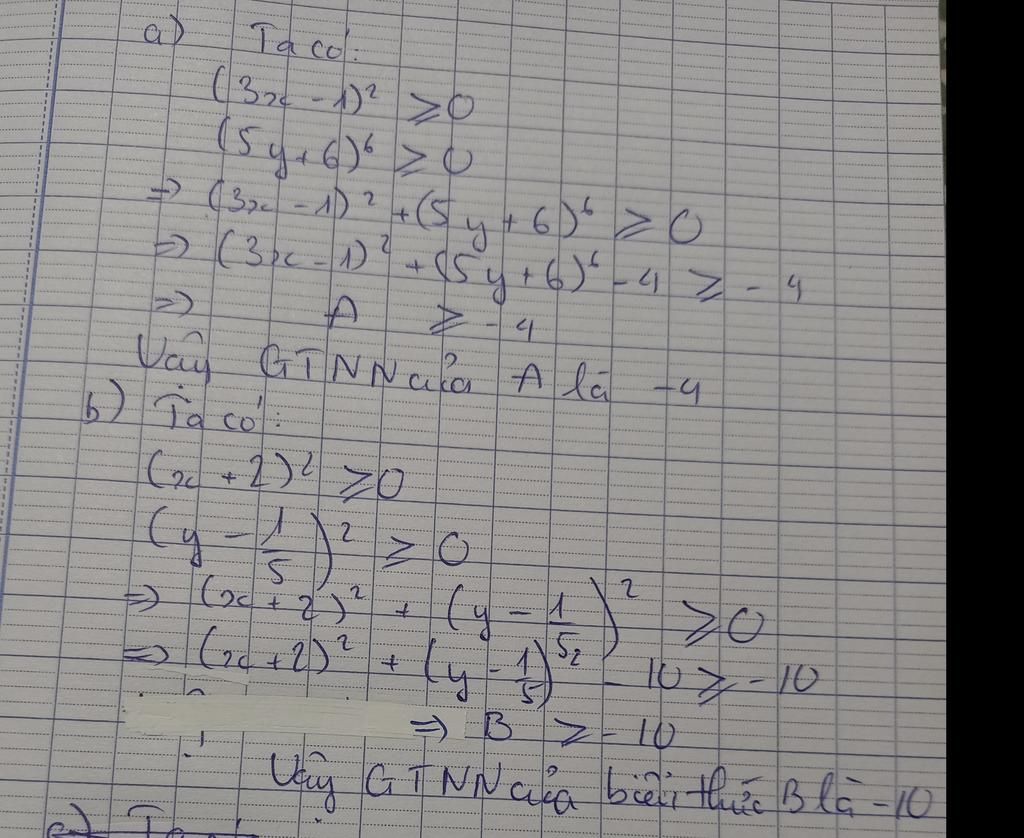 a) Ta có:
(3x - 1)² ≥ 0
(5y + 6)⁶ ≥ 0
⇒ (3x - 1)² + (5y + 6)⁶ ≥ 0
⇒ (3x - 1)² + (5y + 6)⁶ - 4 ≥ - 4
⇒ A ≥ - 4
Vậy GTNN của A là -4
b) Ta có:
(x + 2)² ≥ 0
(y - 1/5)² ≥ 0
⇒ (x + 2)² + (y - 1/5)² ≥ 0
⇒ (x + 2)² + (y - 1/5)² - 10 ≥ - 10
⇒ B ≥ - 10
Vậy GTNN của biểu thức B là -10